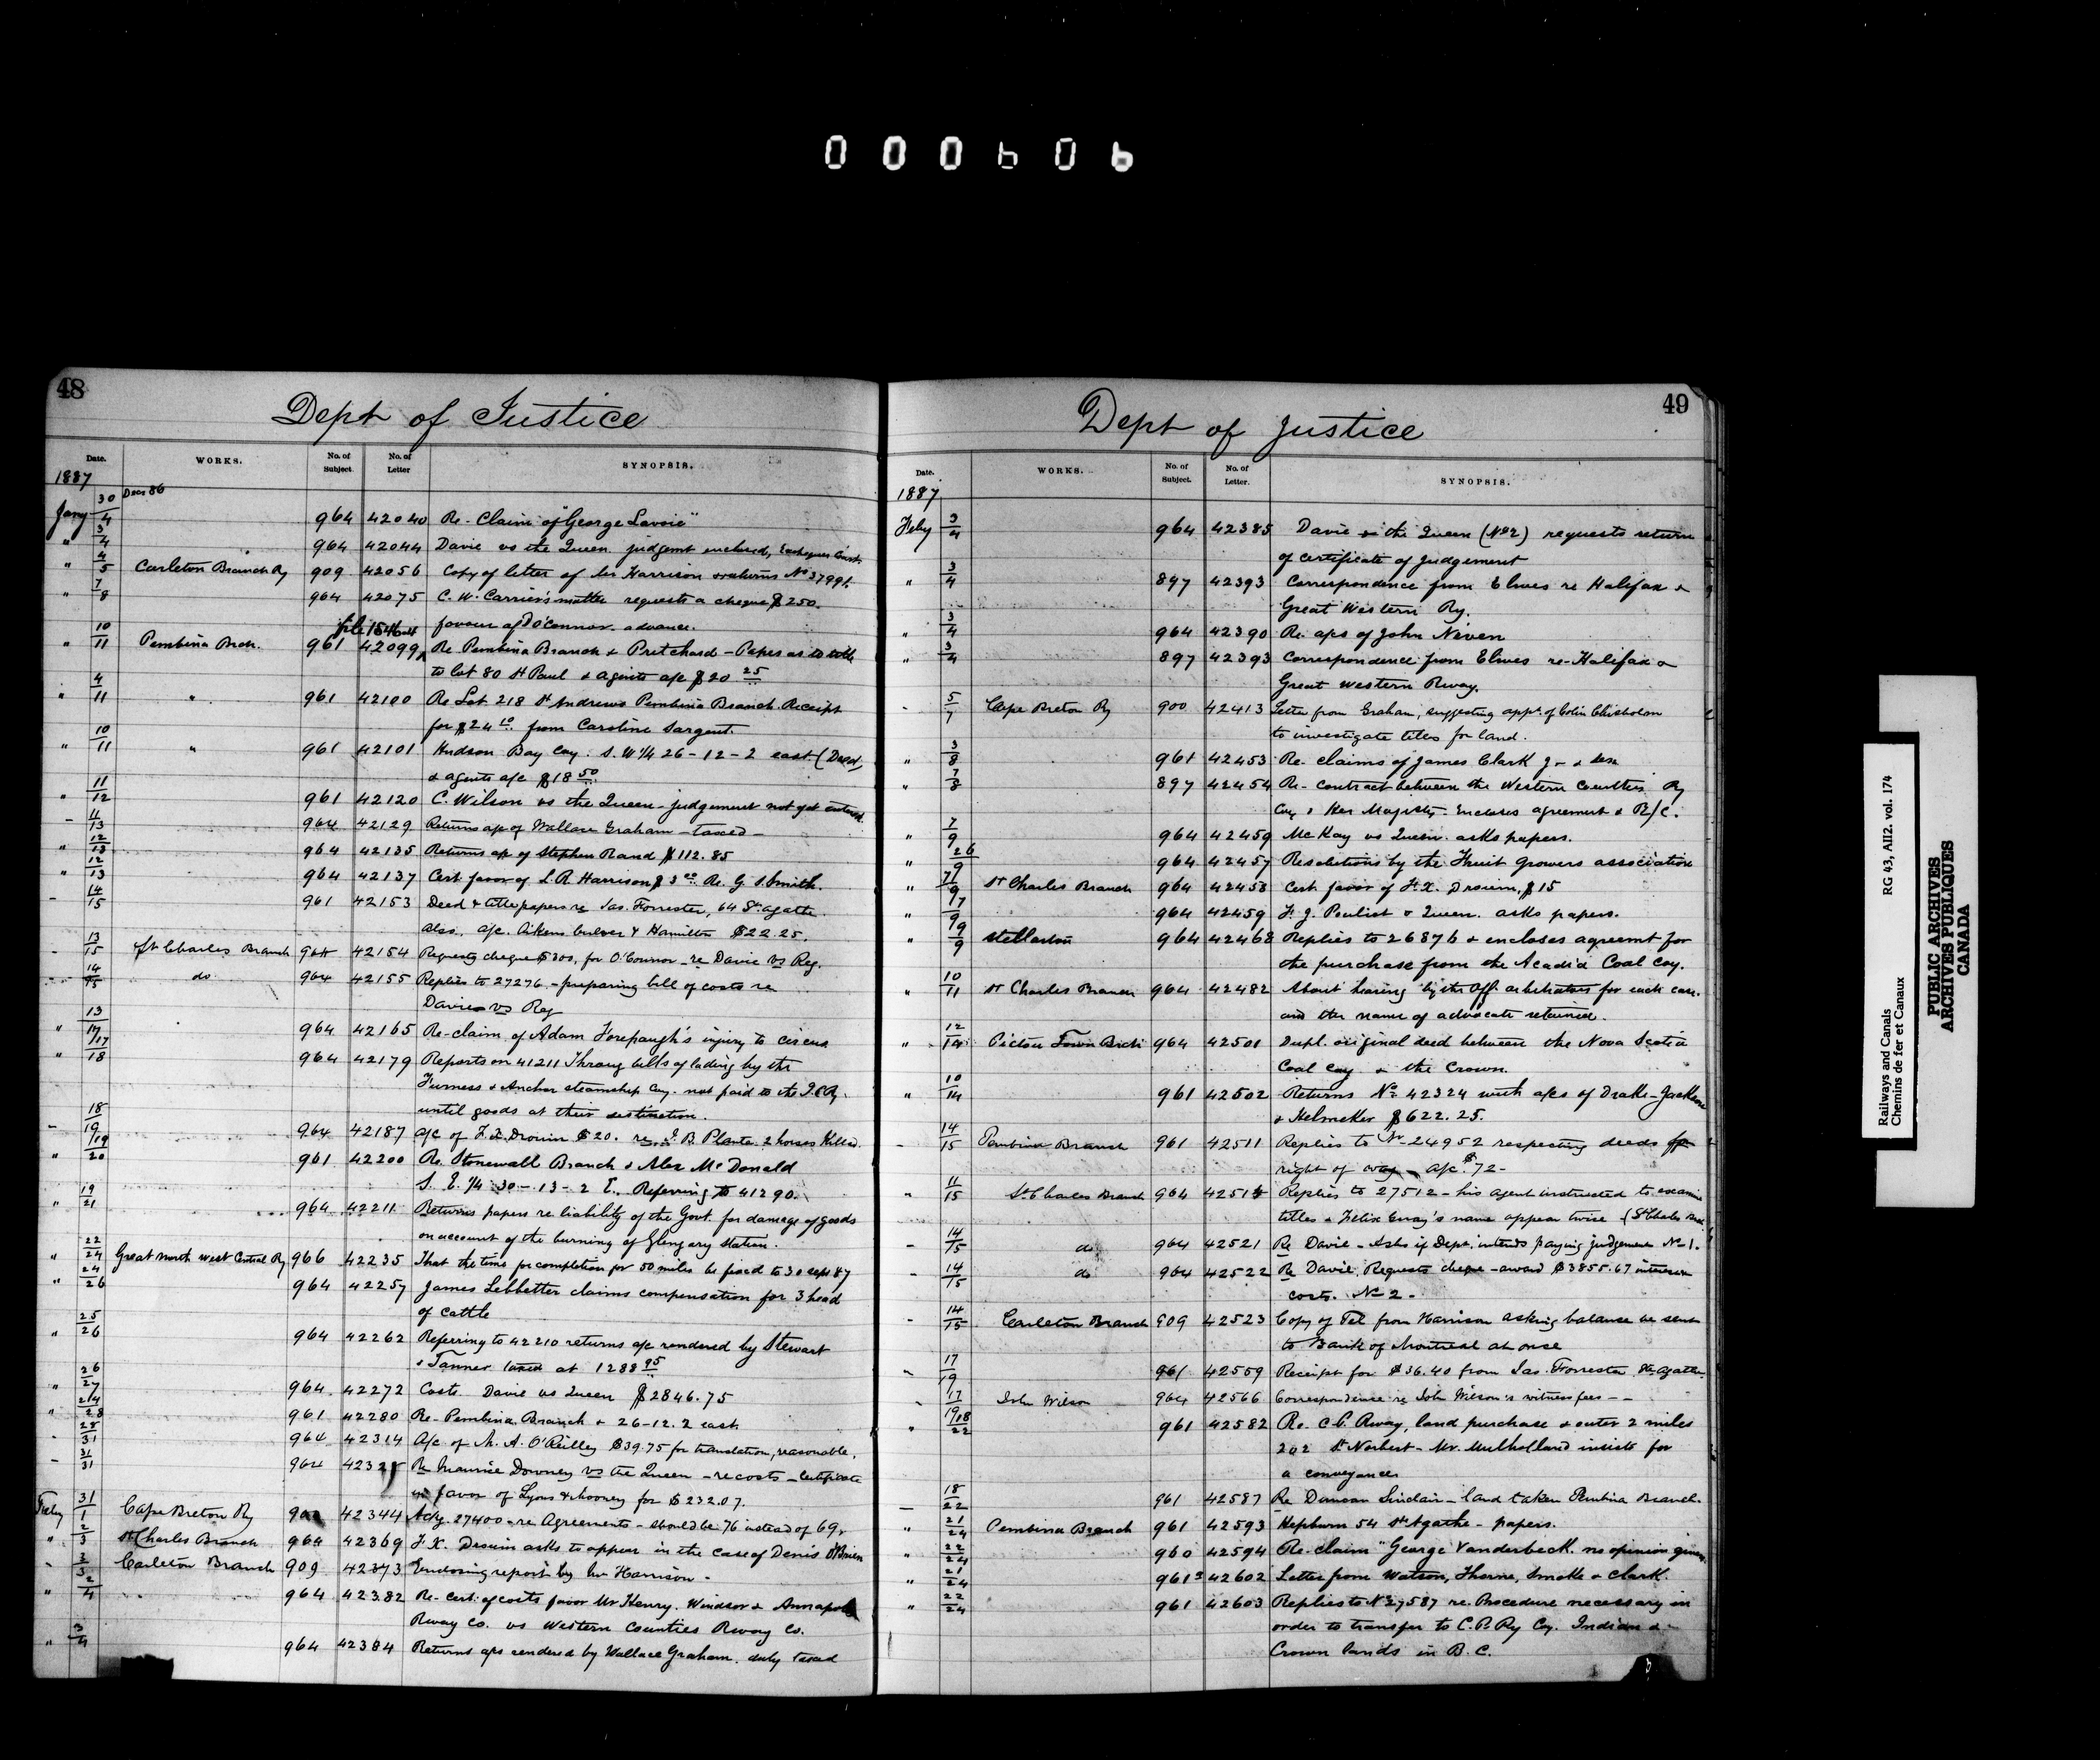 000606
48
Dept of Justice
Date. WORKS. No. of Subject. No. of Letter SYNOPSIS.
1887
Jany 30/4 Decr 86 964 42040 Re- Claim of "George Lavoie"
" 3/4 964 42044 Davie vs the Queen judgemt enclosed, Exchequer Court.
" 4/5 Carleton Branch Ry 909 42056 Copy of letter of Mr Harrison & returns No 37991.
" 7/8 964 42075 C. W. Carrier's matter requests a cheque $250.
favour of O'Connor. advance.
file 15464
" 10/11 Pembina Brch. 961 42099 Re Pembina Branch & Pritchard - Papers as to title
to lot 80 St Paul & agents a/c $20 25
" 4/11 " 961 42100 Re Lot 218 St Andrews Pembina Branch. Receipt
for $24 10 from Caroline Sargent.
" 10/11 " 961 42101 Hudson Bay Coy. S. W 1/4 26-12-2 east (Deed,
& agents a/c $18 50
" 11/12 961 42120 C. Wilson vs the Queen - judgement not yet entered.
- 11/13 964 42129 Returns a/c of Wallace Graham - taxed -
" 12/13 964 42135 Returns a/c of Stephen Rand $112.85
" 12/13 964 42137 Cert. favor of L. R. Harrison $3 00 Re. G. Smith.
- 14/15 961 42153 Deed & title papers re Jas. Forrester, 64 St. Agathe
also, a/c. Aikens Culver & Hamilton $22.25.
- 13/15 St Charles Branch 964 42154 Requests cheque $300, for O'Connor - re Davie vs Reg.
- 14/15 do. 964 42155 Replies to 27276 - preparing bill of costs re
Davie vs Reg
" 13/17 964 42165 Re-claim of Adam Forepaugh's injury to circus
" 17/18 964 42179 Reports on 41211 Throug bills of lading by the
Furness & Anchor steamship Coy. not paid to the I.C.Ry.
until goods at their destination.
- 18/19 964 42187 A/c of F. X. Drouin $20. re J. B. Plante. 2 horses Killed.
" 19/20 961 42200 Re. Stonewall Branch & Alex McDonald
S. E. 1/4 30-13-2 E. Referring to 41290.
" 19/21 964 42211 Returns papers re liability of the Govt. for damage of goods
on account of the burning of Glengary Station.
" 22/24 Great North West Central Ry 966 42235 That the time for completion for 50 miles be fixed to 30 sept 87
" 24/26 964 42257 James Lebbetter claims compensation for 3 head
of cattle
" 25/26 964 42262 Referring to 42210 returns a/c rendered by Stewart
& Tanner taxed at 1288 95
" 26/27 964 42272 Costs. Davie vs Queen $2846.75
" 24/28 961 42280 Re- Pembina Branch & 26-12.2 east.
" 28/31 964 42314 A/c. of M. A. O'Reilley $39.75 for translation, reasonable.
- 31/31 964 42325 Re Maurice Downey vs the Queen - re costs - Certificate
in favor of Lyons & Mooney for $232.07.
Feby 31/1 Cape Breton Ry 900 42344 Ackg. 27400 - re Agreements - should be 76 instead of 69.
" 2/3 St Charles Branch 964 42369 F. X. Drouin asks to appear in the case of Denis O'Brien
- 3/3 Carleton Branch 909 42373 Enclosing report by Mr Harrison -
" 2/4 964 42382 Re- Cert. of costs favor Mr Henry. Windsor & Annapolis
Rway Co. vs Western Counties Rway Co.
" 3/4 964 42384 Returns a/cs rendered by Wallace Graham. duly taxed
49
Dept of Justice
Date. WORKS. No. of Subject. No. of Letter. SYNOPSIS.
1887
Feby 3/4 964 42385 Davie vs the Queen (No 2) requests return
of certificate of judgement
" 3/4 897 42393 Correspondence from Elwes re Halifax &
Great Western Ry.
" 3/4 964 42390 Re. a/cs of John Niven
" 3/4 897 42393 Correspondence from Elwes re-Halifax &
Great Western Rway.
- 5/7 Cape Breton Ry 900 42413 Letter from Graham, suggesting appt. of Colin Chisholm
to investigate titles for land.
" 3/8 961 42453 Re. claims of James Clark Jr & Senr
" 7/8 897 42454 Re- contract between the Western Counties Ry
Coy & Her Majesty. Encloses agreement & B/C.
" 7/9 964 42459 McKay vs Queen. asks papers.
" 26/9 964 42457 Resolutions by the Fruit Growers association
" 7/9 St Charles Branch 964 42458 Cert. favor of F. X. Drouin, $15
" 7/9 964 42459 F. J. Pouliot & Queen. asks papers.
" 9/9 Stellarton 964 42468 Replies to 26876 & encloses agreemt for
the purchase from the Acadia Coal Coy.
" 10/11 St Charles Branch 964 42482 About hearing by the Off. arbitrators for each case.
and the name of advocate retained.
" 12/14 Pictou Town Brch 964 42501 Dupl. original deed between the Nova Scotia
Coal Coy & the Crown.
" 10/14 961 42502 Returns No 42324 with a/cs of Drake-Jackson
& Helmcken $622.25.
- 14/15 Pembina Branch 961 42511 Replies to No 24952 respecting deeds for
right of way - a/c. $72-
" 11/15 St. Charles Branch 964 42515 Replies to 27512 - his agent instructed to examine
titles & Felix Guay's name appear twice - (St Charles Brch.
- 14/15 do 964 42521 Re Davie - Asks if Dept. intends paying judgement No 1.
- 14/15 do 964 42522 Re Davie. Requests cheque - award $3855.67 interest
costs. No 2 -
- 14/15 Carleton Branch 909 42523 Copy of Tel from Harrison asking balance be sent
to Bank of Montreal at once
- 17/19 961 42559 Receipt for $36.40 from Jas. Forrester St. Agathe.
- 17/19 John Wilson 964 42566 Correspondence re John Wilson's witness fees - -
" 18/22 961 42582 Re. C.P. Rway, land purchase & outer 2 miles
202 St Norbert - Mr. Mulholland insists for
a conveyance
- 18/22 961 42587 Re Duncan Sinclair - land taken Pembina Branch.
" 21/24 Pembina Branch 961 42593 Hepburn 54 St Agathe - papers.
" 22/24 960 42594 Re-claim "George Vanderbeck. no opinion given.
" 21/24 961 42602 Letter from Watson, Thorne, Smoke & Clark.
" 22/24 961 42603 Replies to No 27587 re. Procedure necessary in
order to transfer to C.P. Ry Coy. Indian &
Crown lands in B.C.
Railways and Canals RG 43, AII2. vol. 174
Chemins de fer et Canaux
PUBLIC ARCHIVES
ARCHIVES PUBLIQUES
CANADA